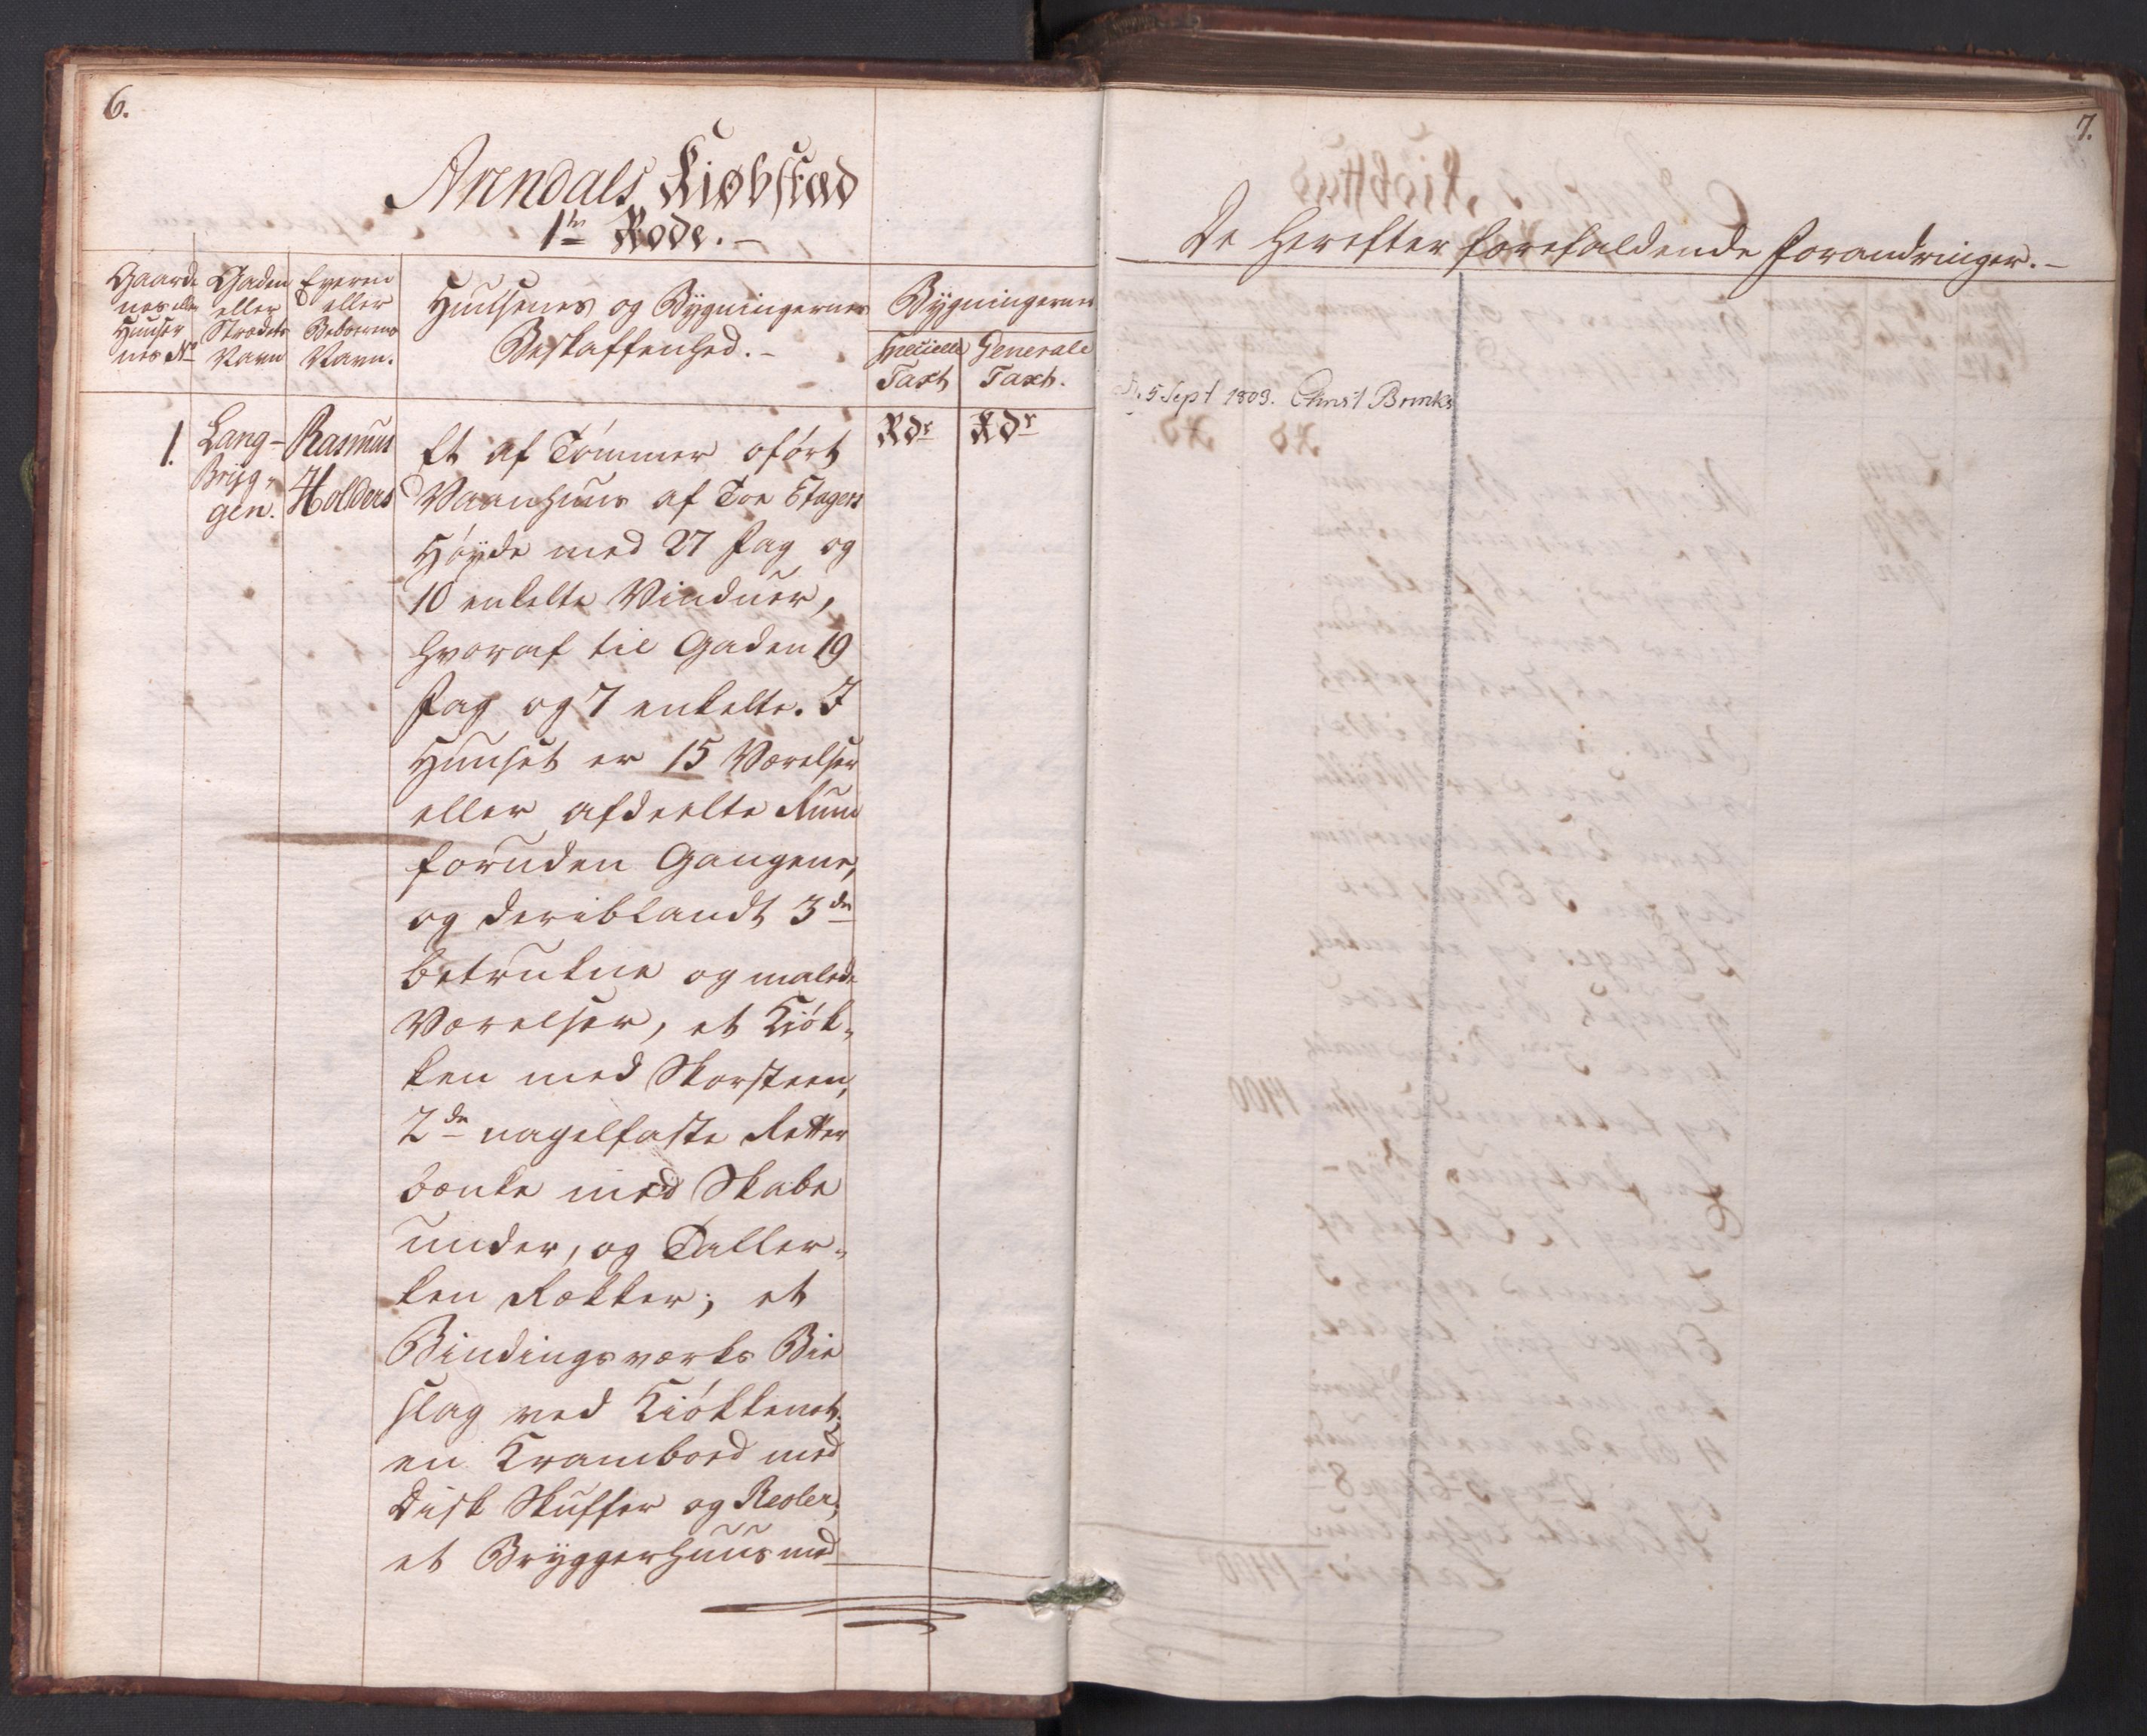 6.
Arendals Kiøbstæd
1te Rode.-
Gaarde
nes eller
Huuser
nes No
Gaden
eller
Strædets
Navn
Eyeren
eller
Beboernes
Navn.
Huusenes og Bÿgningernes
Beskaffenhed.-
Bÿgningernes
Specielle
Taxt
Generale
Taxt.
Rdr
Rdr
1.
Lang-
Brÿg-
gen.
Rasmus
Holders
Et af Tømmer oført
Vaanhuus af Toe Etagers
Høÿde med 27 Fag og
10 enkelte Vinduer,
hvoraf til Gaden 19
Fag og 7 enkelte. I
Huuset er 15 Værelser
eller afdeelte Rum
foruden Gangene,
og deriblandt 3de
betrukne og malede
Værelser, et Kiøk-
ken med Skorsteen,
2de nagelfaste Retter
bænke med Skabe
under, og Taller-
ken Rækker; et
Bindingsværks Bie
slag ved Kiøkkenet;
en Krambod med
Disk Skuffer og Reoler;
et Brÿggerhuus med
7.
De herefter forefaldende Forandringer.-
5 Sept 1803. Christ Brinks